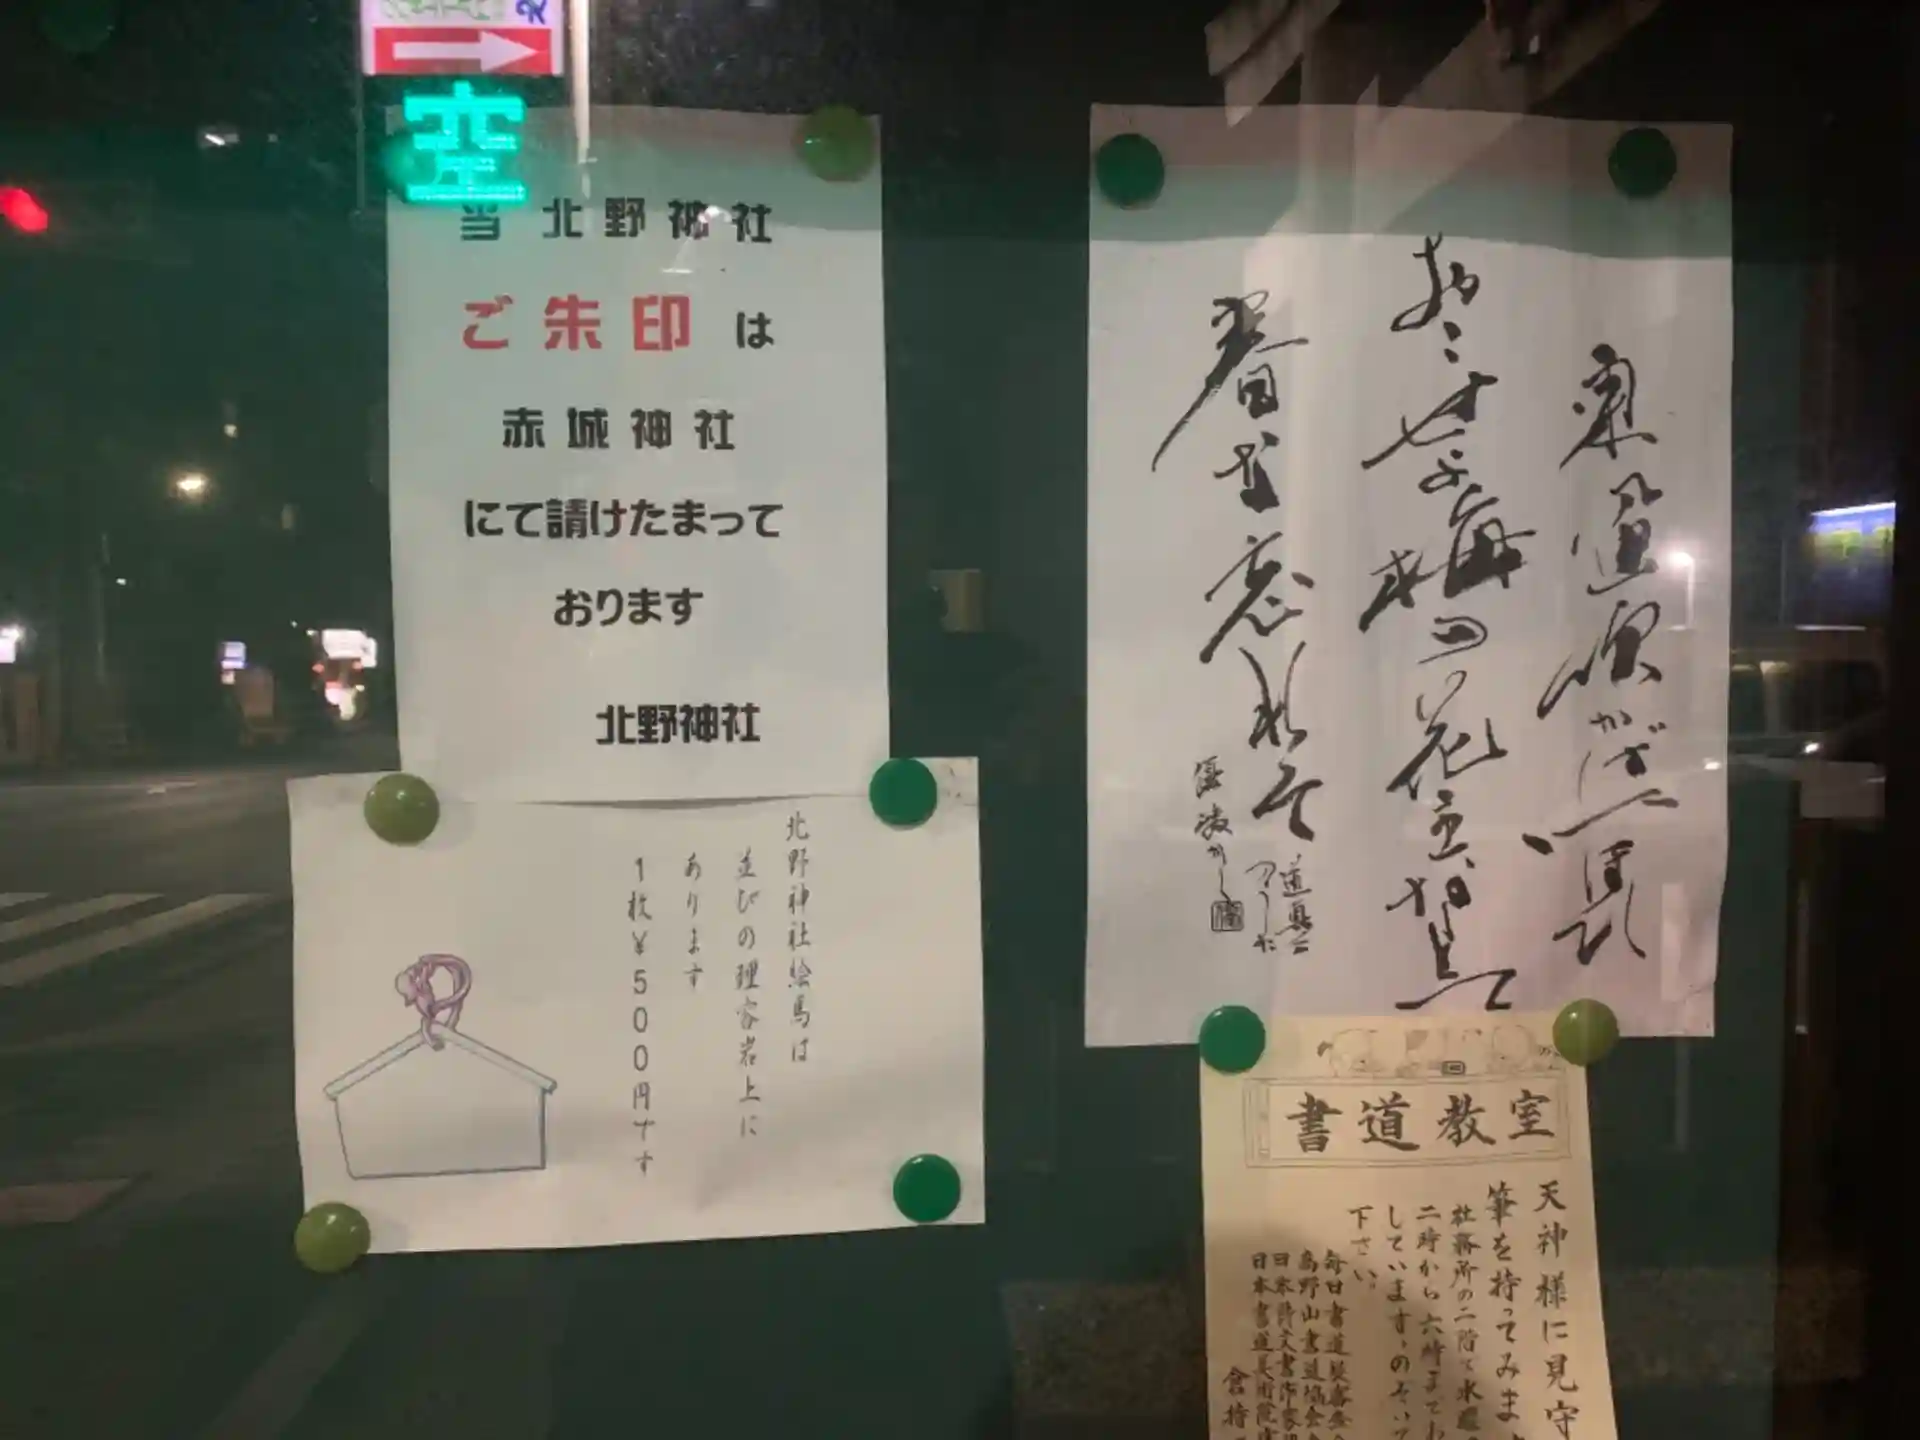 空
当北野神社
ご朱印は
赤城神社
にて請けたまって
おります
北野神社
北野神社絵馬は
並びの理容岩上に
あります
1枚¥500円です
東風吹かば
梅の花
忘れそ
書道教室
天神様に見守
筆を持ってみま
社務所の二階で水曜
二時から六時まで
しています。のぞいて
下さい。
毎日書道展審査会
高野山書道協会
日本詩文書作家
日本書道美術院
倉持